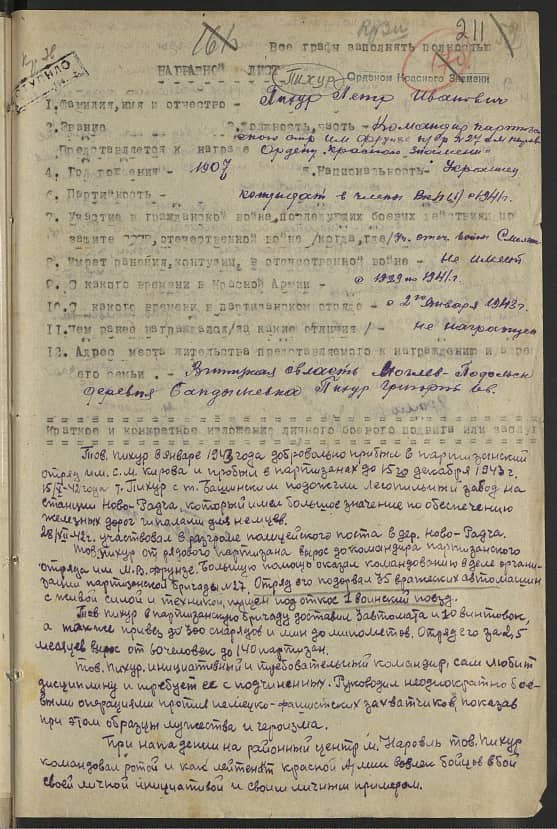 16
211
Все графы заполнять полностью
НАГРАДНОЙ ЛИСТ
Пихур
Орденом Красного Знамени
1. Фамилия, имя и отчество - Пихур Петр Иванович
2. Звание 3. Должность, часть - Командир партиза
Представляется к награде Ордену Красного Знамени
4. Год рождения - 1907 5. Национальность - Украинец
6. Партийность - кандидат в члены ВКП(б) с 1941г.
7. Участие в гражданской войне, последующих боевых действиях по
защите СССР, отечественной войне /когда, где/ Уч. отеч. войны
8. Имеет ранения, контузии, в отечественной войне - не имеет
9. С какого времени в Красной Армии - с 1939 по 1941г.
10. С какого времени в партизанском отряде - с 2го января 1943г.
11. Чем ранее награждался /за какие отличия/ - не награжден
12. Адрес места жительства представляемого к награждению и адрес
его семьи. - область Могилев-Подольск
деревня Пихур
Краткое и конкретное изложение личного боевого подвига или заслуг
Тов. Пихур в январе 1943 года добровольно прибыл в партизанский
отряд им. С.М. Кирова и пробыл в партизанах до 15го декабря 1943г.
года т. Пихур с т. Башинским подожгли лесопильный завод на
станции Ново-Радча, который имел большое значение по обеспечению
железных дорог шпалами для немцев.
участвовал в разгроме полицейского поста в дер. Ново-Радча.
Тов. Пихур от рядового партизана вырос до командира партизанского
отряда им. М.В. Фрунзе. Большую помощь оказал командованию в деле органи-
зации партизанской бригады №27. Отряд его подорвал 35 вражеских автомашин
с живой силой и техникой, пущен под откос 1 воинский поезд.
Тов Пихур в партизанскую бригаду доставил 3 автомата и 10 винтовок,
а также привез до 300 снарядов и мин до минометов. Отряд его за 2,5
месяцев вырос от 60 человек до 140 партизан.
Тов. Пихур, инициативный и требовательный командир, сам любит
дисциплину и требует ее с подчиненных. Руководил неоднократно бое-
выми операциями против немецко-фашистских захватчиков, показав
при этом образцы мужества и героизма.
При нападении на районный центр м. Наровль тов. Пихур
командовал ротой и как лейтенант Красной Армии вовлек бойцов в бой
своей личной инициативой и своим личным примером.